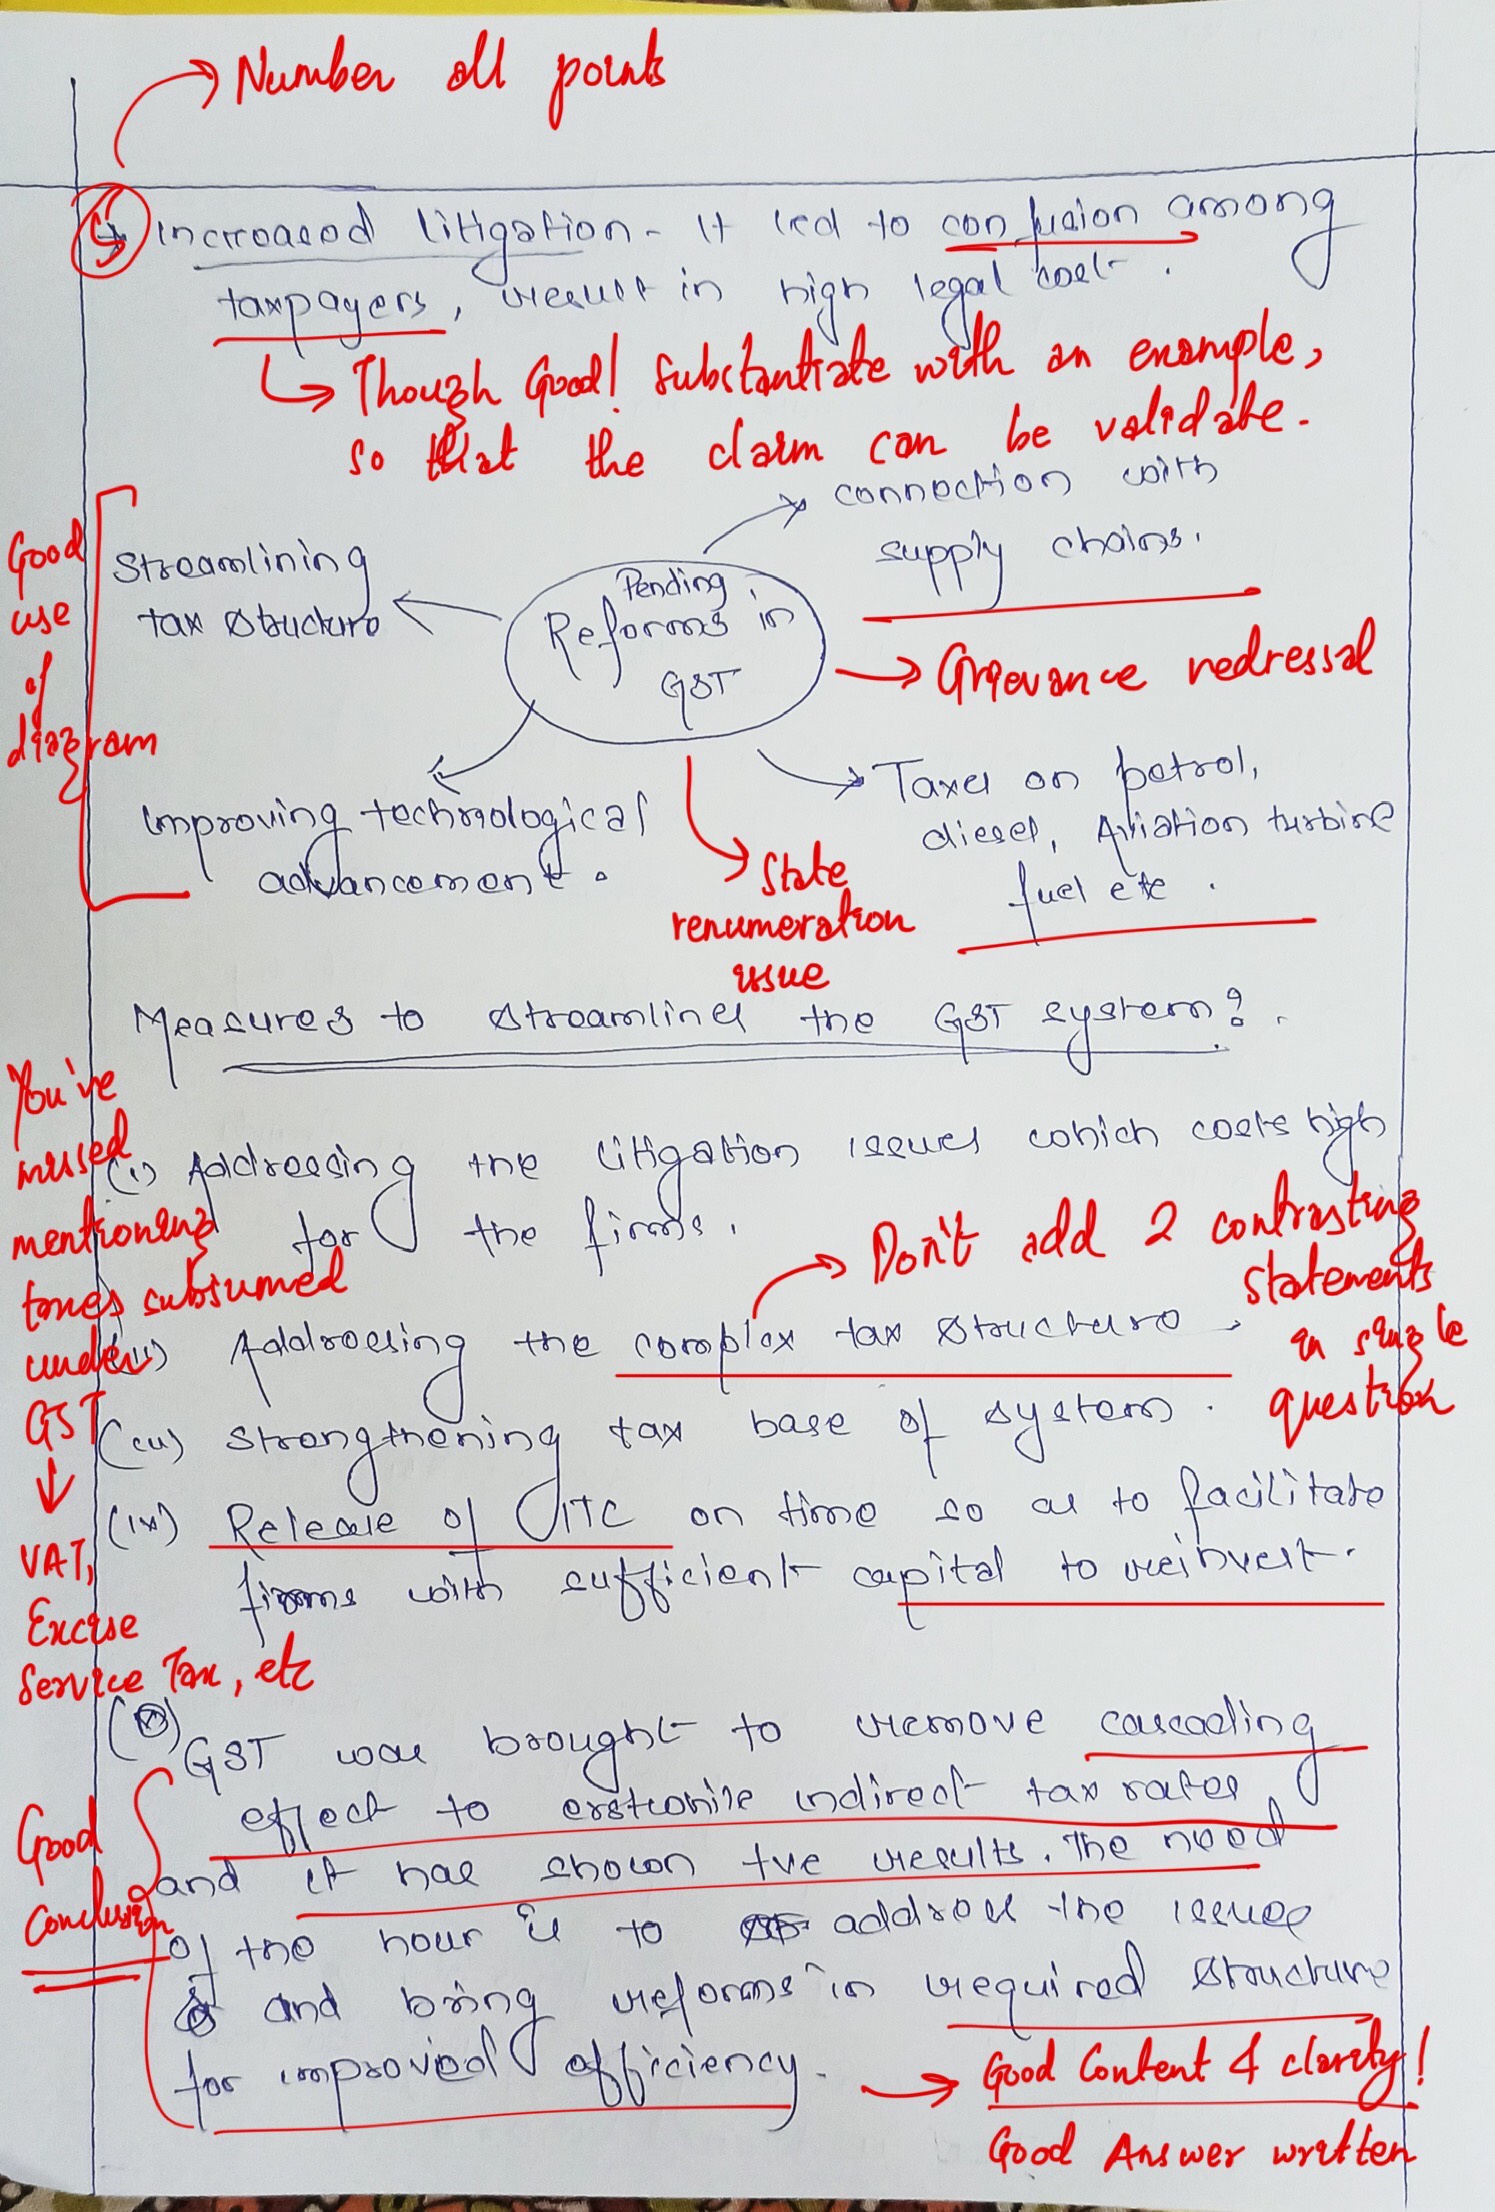 Number all points
→ Increased litigation - It led to confusion among
taxpayers, result in high legal cost.
Though Good! Substantiate with an example,
so that the claim can be validate.
connection with
supply chains.
Good
use
of
diagram
Streamlining
tax structure
Pending
Reforms in
GST
Grievance redressal
Taxes on petrol,
diesel, Aviation turbine
fuel etc.
Improving technological
advancement.
State
renumeration
issue
Measures to streamlines the GST system?
You've
missed
mentioning
taxes subsumed
under
GST
↓
VAT,
Excise
Service Tax, etc
(i) Addressing the litigation issues which costs high
for the firms.
Don't add 2 contrasting
statements
in single
question
(ii) Addressing the complex tax structure.
(iii) Strengthening tax base of system.
(iv) Release of ITC on time so as to facilitate
firms with sufficient capital to reinvest.
GST was brought to remove cascading
effect to erstwhile indirect tax rates
and it has shown +ve results. The need
of the hour is to address the issues
and bring reforms in required structure
for improved efficiency.
Good
Conclusion
Good Content & clarity!
Good Answer written